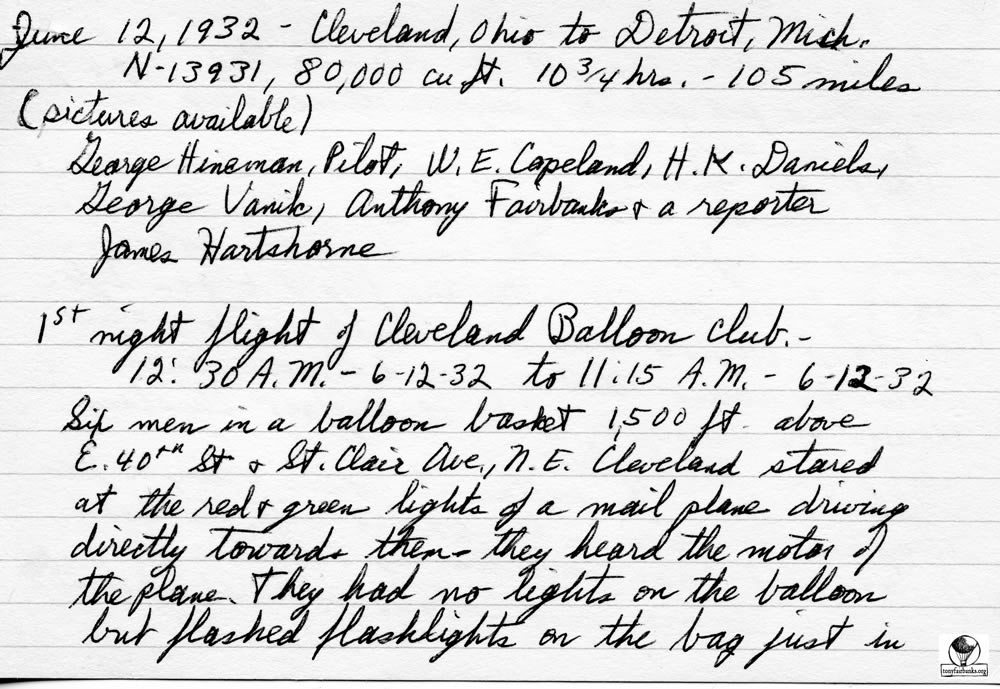 June 12, 1932 - Cleveland, Ohio to Detroit, Mich.
N-13931, 80,000 cu ft. 10 3/4 hrs. - 105 miles
(pictures available)
George Hineman, Pilot, W. E. Copeland, H. K. Daniels,
George Vanik, Anthony Fairbanks & a reporter
James Hartshorne
1st night flight of Cleveland Balloon Club. -
12:30 A.M. - 6-12-32 to 11:15 A.M. - 6-12-32
Six men in a balloon basket 1,500 ft. above
E. 40th St & St. Clair Ave., N.E. Cleveland stared
at the red & green lights of a mail plane driving
directly towards them - they heard the motor of
the plane. They had no lights on the balloon
but flashed flashlights on the bag just in
tonyfairbanks.org